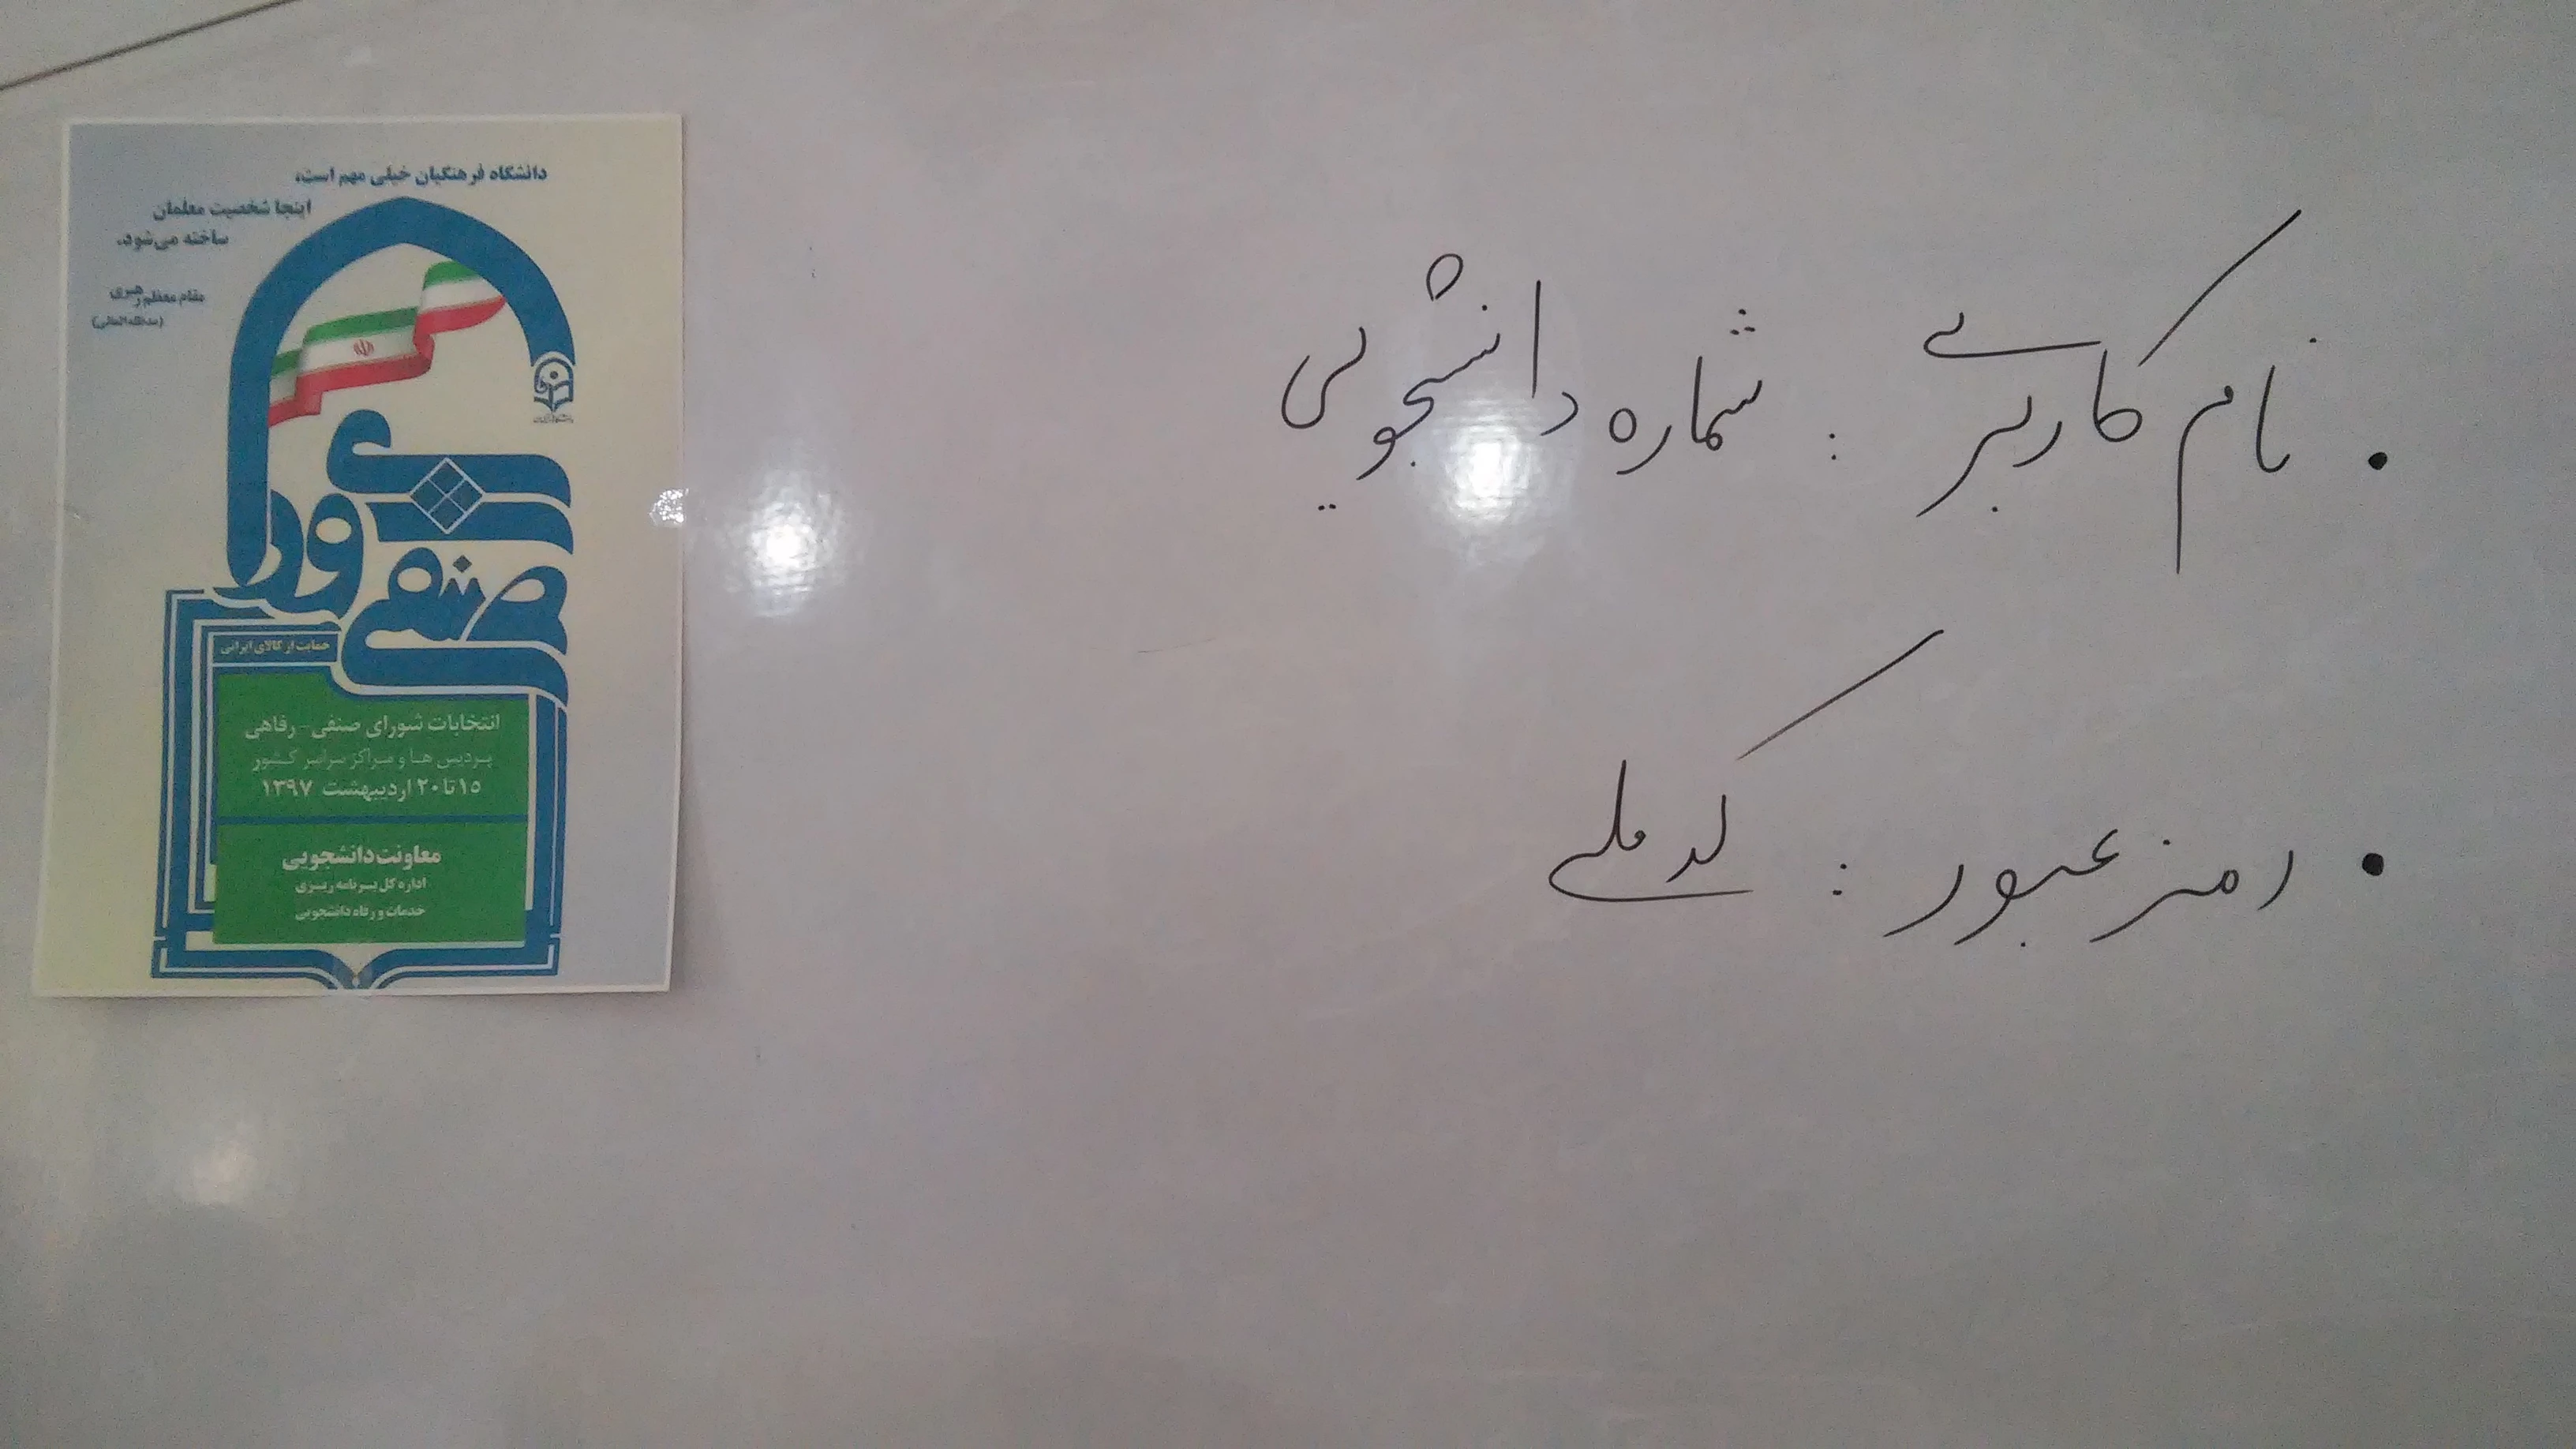 دانشگاه فرهنگیان خیلی مهم است،
اینجا شخصیت معلمان
ساخته می‌شود.
مقام معظم رهبری
(مدظله العالی)
شورای
صنفی
حمایت از کالای ایرانی
انتخابات شورای صنفی - رفاهی
پردیس ها و مراکز سراسر کشور
۱۵ تا ۲۰ اردیبهشت ۱۳۹۷
معاونت دانشجویی
اداره کل برنامه ریزی
خدمات و رفاه دانشجویی
• نام کاربری : شماره دانشجویی
• رمز عبور : کد ملی